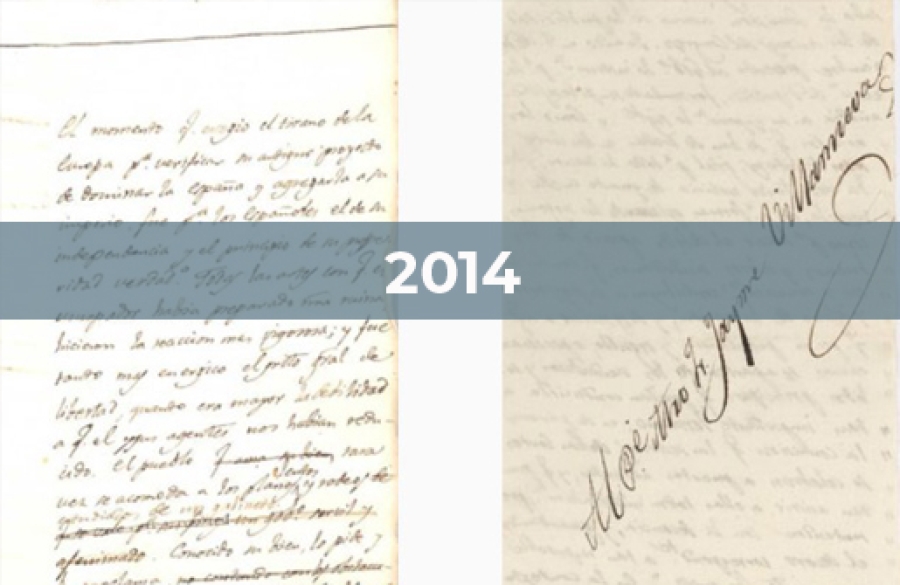 El momento q. eligio el tirano de la
Europa pª. verificar su antiguo proyecto
de dominar la españa y agregarla a su
imperio fue pª. los españoles el de su
independencia y el principio de su prospe-
ridad verdadª. Todas las artes con q. el
usurpador habia preparado una ruina
hicieron la reaccion mas vigorosa; y fue
tanto mas energico el grito gral de
libertad, quando era mayor la debilidad
a q. el y sus agentes nos habian redu-
cido. El pueblo rara
vez se acomoda a los planes y
afeminado. Conocido su bien, lo pide y
2014
Jayme Villanueva